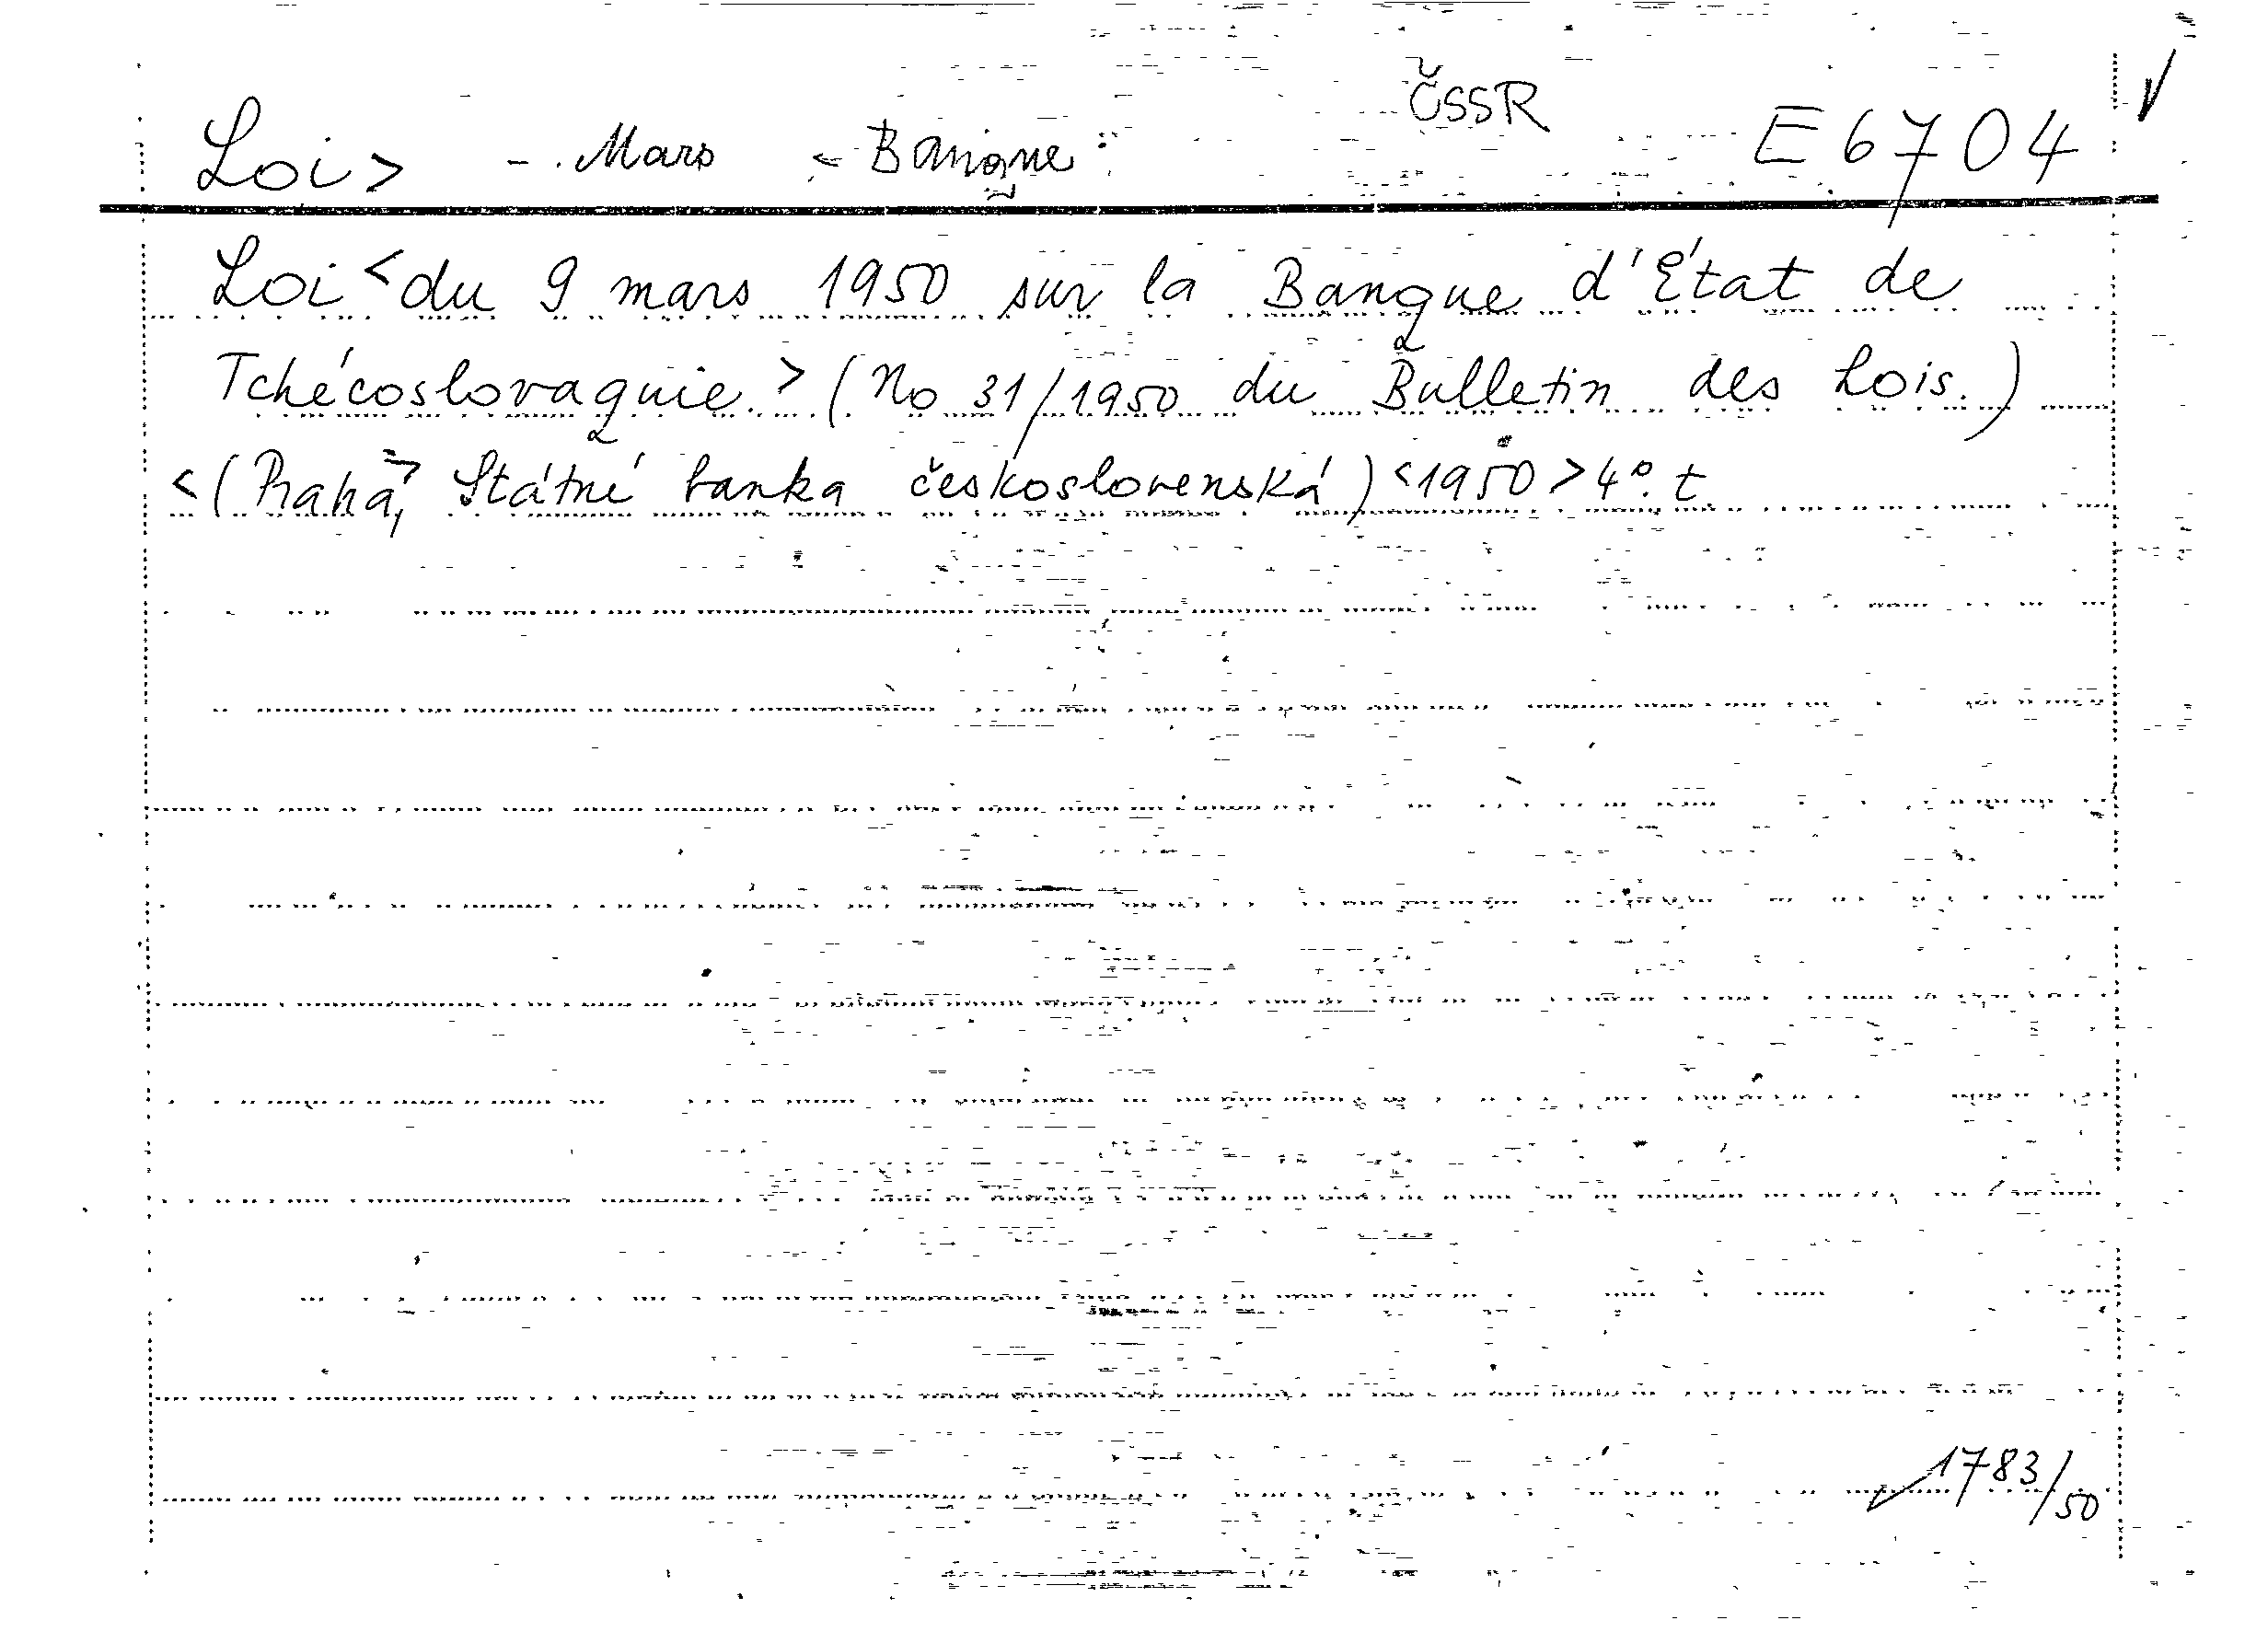 ČSSR
Loi> - Mars < Banque E6704
Loi <du 9 mars 1950 sur la Banque d'État de
Tchécoslovaquie.> (No 31/1950 du Bulletin des Lois.)
<(Praha,> Státní banka československá) <1950> 4°. t.
1783/50